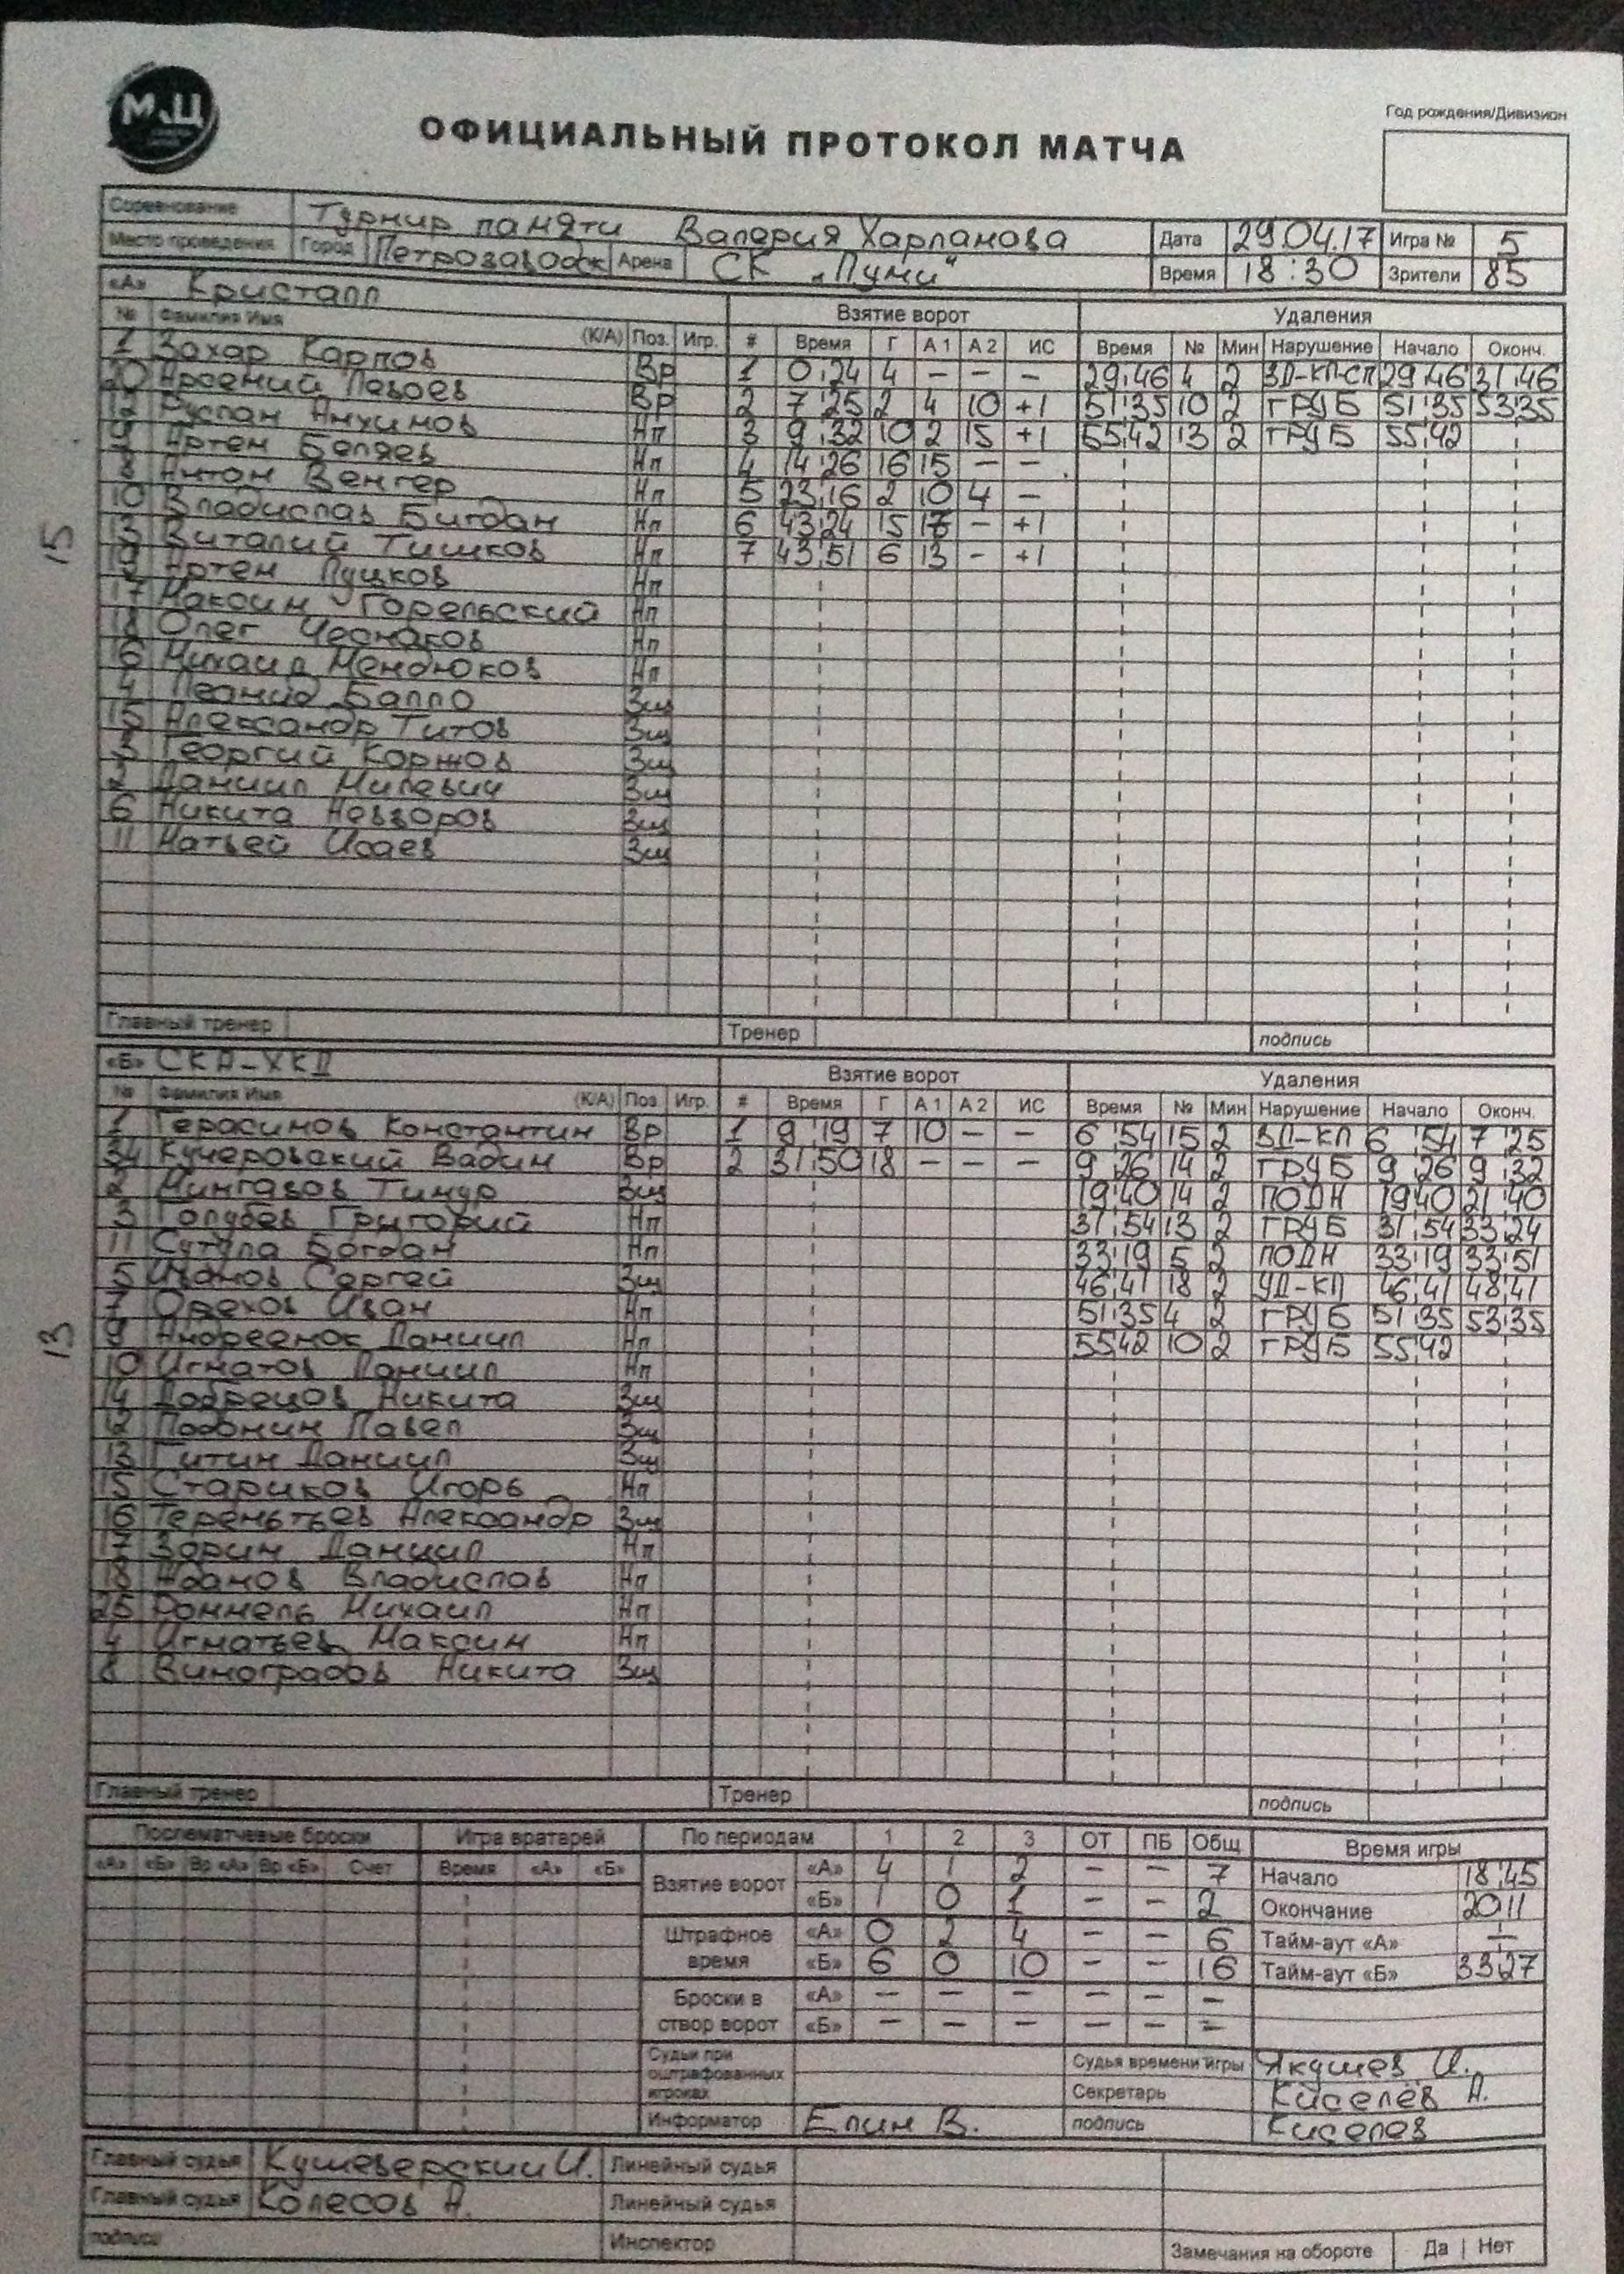 МЦ
ОФИЦИАЛЬНЫЙ ПРОТОКОЛ МАТЧА
Год рождения/Дивизион
Соревнование Турнир памяти Валерия Харламова Дата 29.04.17 Игра № 5
Место проведения Город Петрозаводск Арена СК „Луми“ Время 18:30 Зрители 85
«А» Кристалл Взятие ворот Удаления
№ Фамилия Имя (К/А) Поз. Игр. # Время Г А 1 А 2 ИС Время № Мин Нарушение Начало Оконч.
1 Захар Карпов Вр 1 0:24 4 – – – 29:46 4 2 ЗД-КЛ-СП 29:46 31:46
20 Арсений Вр 2 7:25 2 4 10 +1 51:35 10 2 ГРУБ 51:35 53:35
12 Руслан Анхимов Нп 3 9:32 10 2 15 +1 55:42 13 2 ГРУБ 55:42
9 Артем Беляев Нп 4 14:26 16 15 – –
8 Антон Венгер Нп 5 23:16 2 10 4 –
10 Владислав Бигдан Нп 6 43:24 15 17 – +1
13 Виталий Тишков Нп 7 43:51 6 13 – +1
19 Артем Луцков Нп
17 Максим Горельский Нп
18 Олег Чеснаков Нп
16 Михаил Мендюков Нп
4 Леонид Балло Зщ
15 Александр Титов Зщ
3 Георгий Коржов Зщ
2 Даниил Милевич Зщ
6 Никита Невзоров Зщ
11 Матвей Исаев Зщ
15
Главный тренер Тренер подпись
«Б» СКА-ХКД Взятие ворот Удаления
№ Фамилия Имя (К/А) Поз. Игр. # Время Г А 1 А 2 ИС Время № Мин Нарушение Начало Оконч.
1 Герасимов Константин Вр 1 9:19 7 10 – – 6:54 15 2 ЗД-КЛ 6:54 7:25
34 Кучеровский Вадим Вр 2 31:50 18 – – – 9:26 14 2 ГРУБ 9:26 9:32
2 Мингазов Тимур Зщ 19:40 14 2 ПОДН 19:40 21:40
3 Голубев Григорий Нп 31:54 13 2 ГРУБ 31:54 33:24
11 Сутула Богдан Нп 33:19 5 2 ПОДН 33:19 33:51
5 Иванов Сергей Зщ 46:41 18 2 УД-КЛ 46:41 48:41
7 Орехов Иван Нп 51:35 4 2 ГРУБ 51:35 53:35
9 Андреенок Даниил Нп 55:42 10 2 ГРУБ 55:42
10 Игнатов Даниил Нп
14 Добрецов Никита Зщ
12 Лобонин Павел Зщ
13 Гитин Даниил Зщ
15 Стариков Игорь Нп
16 Терентьев Александр Зщ
17 Зорин Даниил Нп
18 Жданов Владислав Нп
25 Роммель Михаил Нп
4 Игнатьев Максим Нп
8 Виноградов Никита Зщ
13
Главный тренер Тренер подпись
Послематчевые броски Игра вратарей По периодам 1 2 3 ОТ ПБ Общ Время игры
«А» «Б» Вр «А» Вр «Б» Счет Время «А» «Б»
Взятие ворот «А» 4 1 2 – – 7 Начало 18:45
«Б» 1 0 1 – – 2 Окончание 20:11
Штрафное время «А» 0 2 4 – – 6 Тайм-аут «А» –
«Б» 6 0 10 – – 16 Тайм-аут «Б» 33:27
Броски в створ ворот «А» – – – – – –
«Б» – – – – – –
Судьи при оштрафованных игроках Судья времени игры Якушев И.
Секретарь Киселёв А.
Информатор Елин В. подпись Киселев
Главный судья Кушеверский И. Линейный судья
Главный судья Колесов А. Линейный судья
подпись Инспектор Замечания на обороте Да | Нет